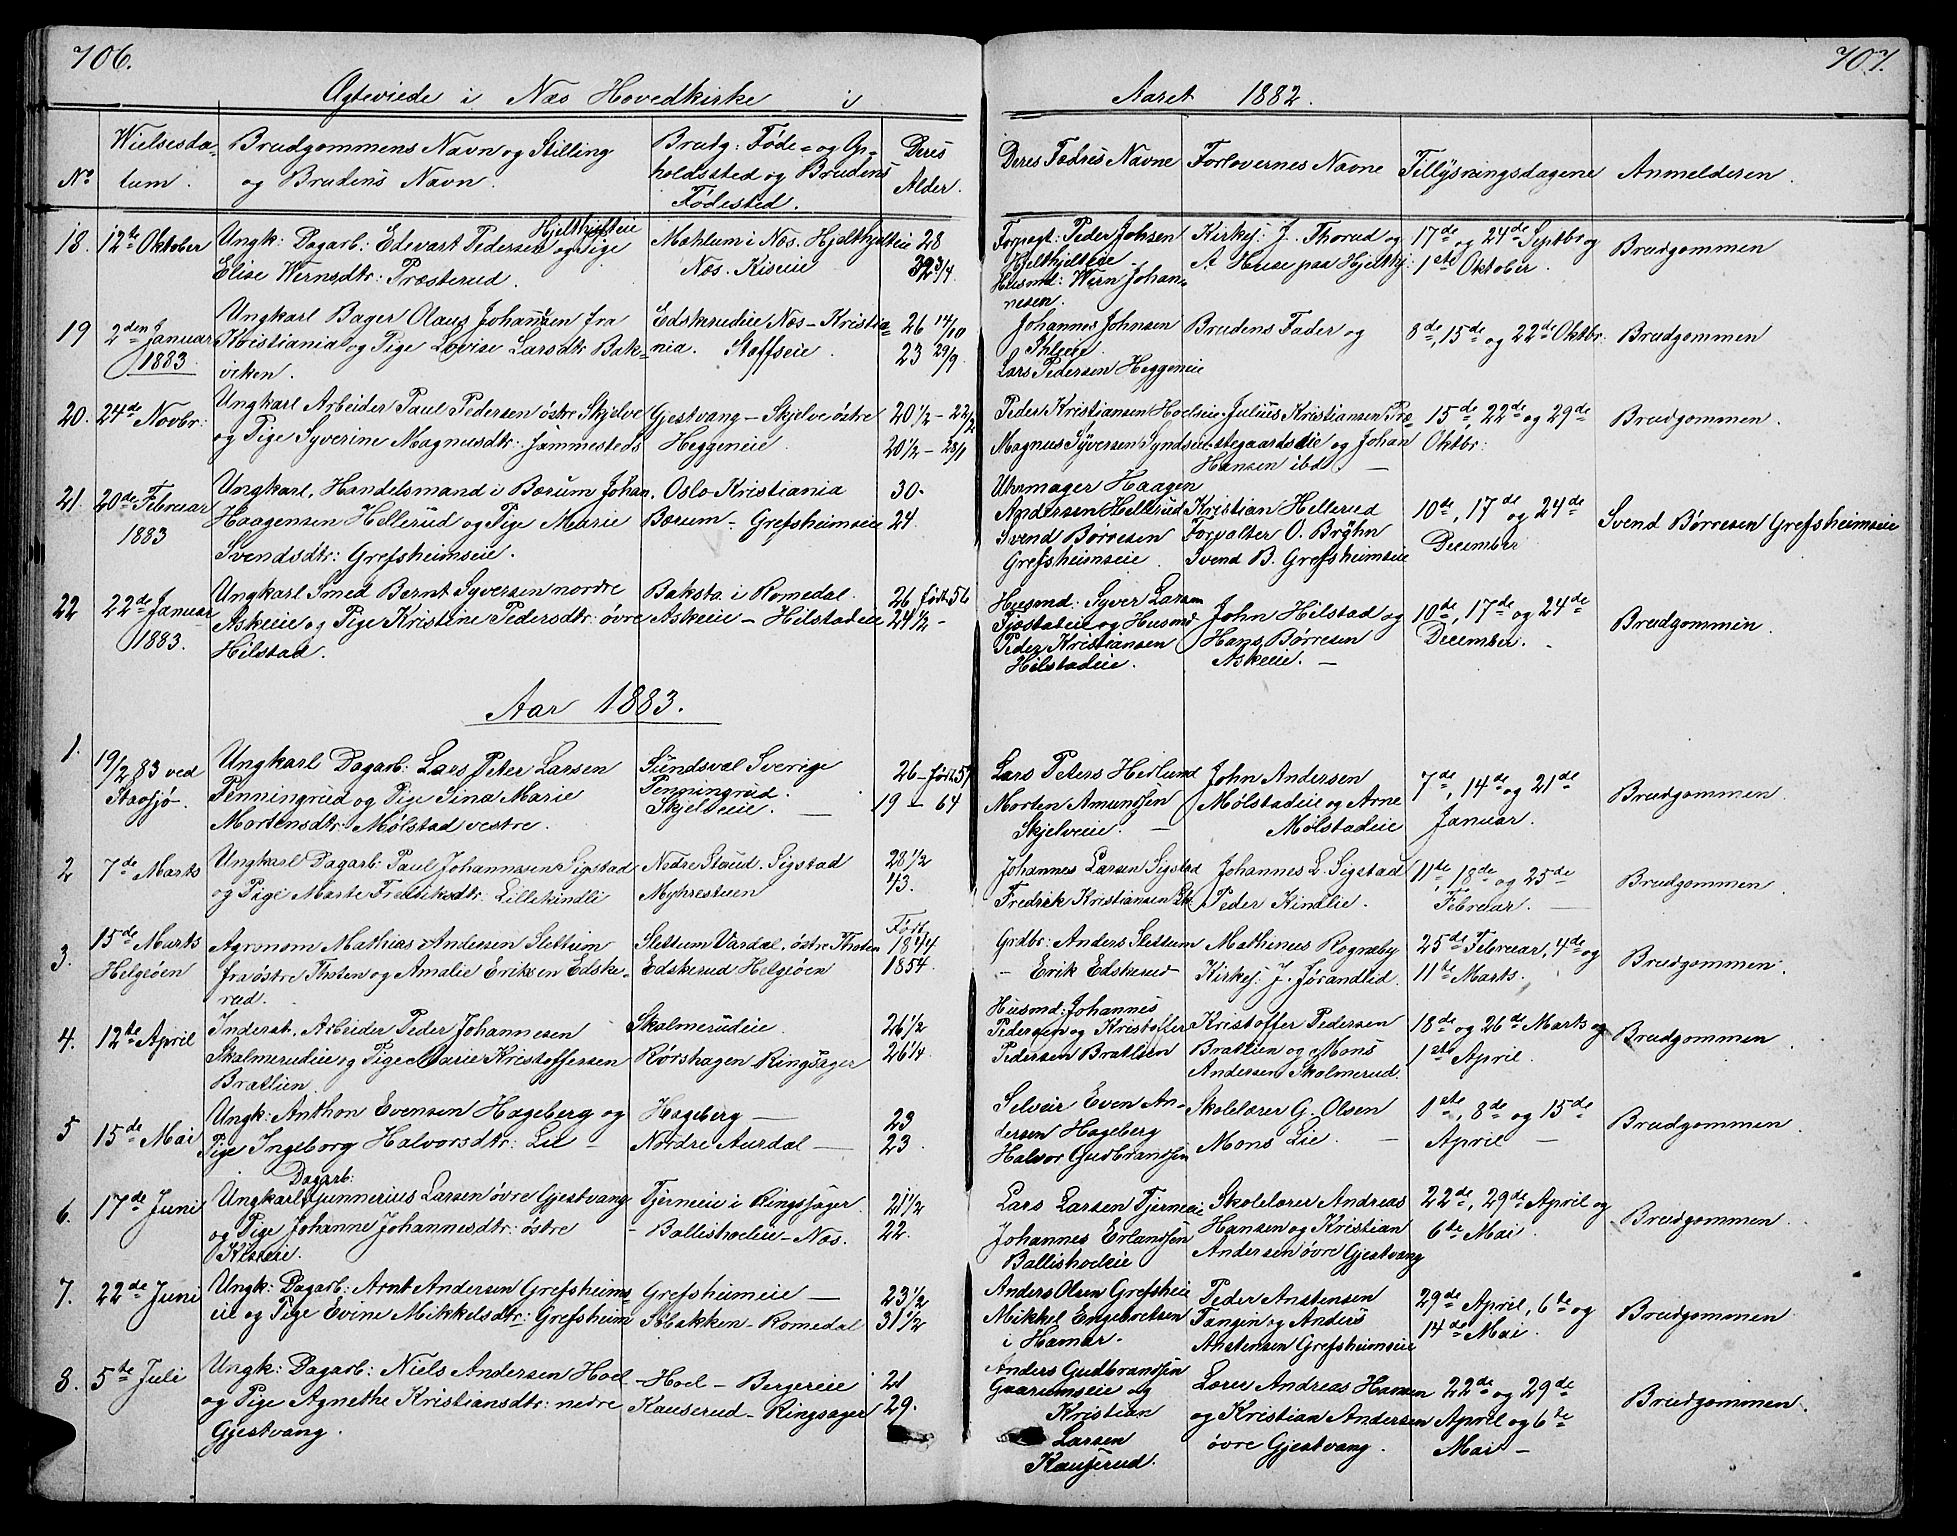 706.
Ægteviede i Næs Hovedkirke i
No
Vielsesda=
tum.
Brudgommens Navn og Stilling
og Brudens Navn.
Brudg: Føde= og Op=
holdssted og Brudens
Fødested.
Deres
Alder.
18.
12te Oktober
Ungk: Dagarb: Edevart Pedersen Hjelthjelteie og Pige
Elise Wernsdtr: Præsterud.
Mæhlum i Næs. Hjelthjelteie
Næs. Kiseie
28
32 3/4.
19
2den Januar
1883
Ungkarl Bager Olaus Johansen fra
Kristiania og Pige Lovise Larsdtr Bak=
viken.
Edskerudeie Næs - Kristia=
nia. Stoffseie.
26 14/10
23 29/9
20.
24de Novbr:
Ungkarl Arbeider Paul Pedersen østre Skjelve
og Pige Syverine Magnusdtr: Jammesteds
Gjestvang - Skjelve østre
Heggeneie.
20 1/2 - 22/2
20 1/2 - 23/1
21.
20de Februar
1883
Ungkarl, Handelsmand i Bærum Johan
Haagensen Hellerud og Pige Marie
Svendsdtr: Grefsheimseie.
Oslo Kristiania
Bærum - Grefsheimseie
30.
24.
22
22de Januar
1883.
Ungkarl Smed Bernt Syversen nordre
Askeie og Pige Kristine Pedersdtr: øvre
Hilstad.
Baksta i Romedal.
Askeie - Hilstadeie
26 født 56
24 1/2 -
Aar 1883.
1.
19/2 83 ved
Stavsjø.
Ungkarl Dagarb: Lars Peter Larsen
Penningrud og Pige Sina Marie
Mortensdtr: Mølstad vestre.
Sundsval Sverige
Penningrud.
Skjelveie. -
26 - født 57
19 - 64
2
7de Marts
Ungkarl Dagarb: Paul Johannessen Sigstad
og Pige Marte Fredriksdtr: Lillekindli
Nedre Staud. Sigstad
Myhrestuen
28 1/2
43.
3.
15de Marts
Helgøen
Agronom Mathias Andersen Slettum
fra østre Thoten og Amalie Eriksen Edske=
rud.
Slettum Vardal, østre Thoten
Edskerud Helgøen
Født
1844
1854.
4.
12te April
Inderst, Arbeider Peder Johannesen
Skolmerudeie og Pige Marie Kristoffersen
Brattlien.
Skolmerudeie.
Rørshagen Ringsager
26 1/2
26 1/4.
5
15de Mai
Ungk: Anthon Evensen Hageberg og
Pige Ingeborg Halvorsdtr: Lie -
Hageberg -
Nordre Aurdal -
23
23.
6.
17de Juni
Ungkarl Dagarb: Gunnerius Larsen øvre Gjestvang
og Pige Johanne Johannesdtr: østre
Kiseie.
Tjerneie i Ringsager.
- Ballishoeleie - Næs.
21 1/2
22.
7.
22de Juni
Ungk: Dagarb: Arnt Andersen Grefsheims
eie og Pige Evine Mikkelsdtr: Grefsheim
Grefsheimeie -
Stokken - Romedal
23 1/2
31 1/2
8.
5te Juli
Ungk: Dagarb: Niels Andersen Hoel
og Pige Agnethe Kristiansdtr: nedre
Gjestvang.
- Hoel - Bergereie
Kauserud - Ringsager
21
29.
707.
Aaret 1882.
Deres Fædres Navne
Forlovernes Navne
Tillysningsdagene
Anmelderen.
Forpagt: Peder Johsen
Hjelthjelteie.
Husmd: Wern Johan=
nesen.
Kirkesj: J. Thorud og
A Huse paa Hjelthj:
17de og 24de Septbr og
1ste Oktober.
Brudgommen
Johannes Johnsen
Ihleie.
Lars Pedersen Heggeneie
Brudens Fader og
8de, 15de og 22de Oktbr.
Brudgommen
Peder Kristiansen Hoelseie.
Magnus Syversen Syndseie
Julius Kristiansen Præ=
stegaardseie og Johan
Hansen ibd -
15de, 22de og 29de
Oktbr:
Brudgommen.
Uhrmager Haagen
Andersen Hellerud
Svend Børresen
Grefsheimseie.
Kristian Hellerud
Forvalter O. Bryhn
Svend B. Grefsheimseie
10de, 17de og 24de
December
Svend Børresen Grefsheimseie
Husmd: Syver Larsen
Tjøstadeie og Husmd
Peder Kristiansen
Hilstadeie.
John Hilstad og
Hans Børresen
Askeie. -
10de, 17de og 24de
December.
Brudgommen.
Lars Peters Hedlund
Morten Amundsen
Skjelveie. -
John Andersen
Mølstadeie og Arne
Mølstadeie
7de, 14de og 21de
Januar.
Brudgommen.
Johannes Larsen Sigstad
Fredrik Kristiansen
Johannes L. Sigstad
Peder Kindlie.
11te, 18de og 25de
Februar. -
Brudgommen.
Grdbr: Anders Slettum
- Erik Edskerud -
Mathinus Rognæby
Kirkesj: J. Jørandlid.
25de Februar, 4de og
11te Marts.
Brudgommen.
Husmd: Johannes
Pedersen og Kristoffer
Pedersen Brattlien
Kristoffer Pedersen
Brattlien og Mons
Andersen Skolmerud.
18de og 26de Marts og
1ste April.
Brudgommen.
Selveir Even An=
dersen Hageberg
Halvor Gudbrandsen
Skolelærer G. Olsen
Mons Lie. -
1ste, 8de og 15de
April -
Brudgommen.
Lars Larsen Tjerneie
Johannes Erlandsen
Ballishoeleie
Skolelærer Andreas
Hansen og Kristian
Andersen øvre Gjestvang
22de, 29de April og
6te Mai.
Brudgommen.
Anders Olsen Grefsheie
Mikkel Engebretsen
i Hamar.
Peder Anstensen
Tangen og Anders
Anstensen Grefsheimseie
29de April, 6te og
14de Mai.
Brudgommen.
Anders Gudbrandsen
Gaarumseie og
Kristian
Larsen
Kauserud.
Lærer Andreas Hansen
og Kristian Andersen
øvre Gjestvang.
22de og 29de
April og 6te
Mai -
Brudgommen.